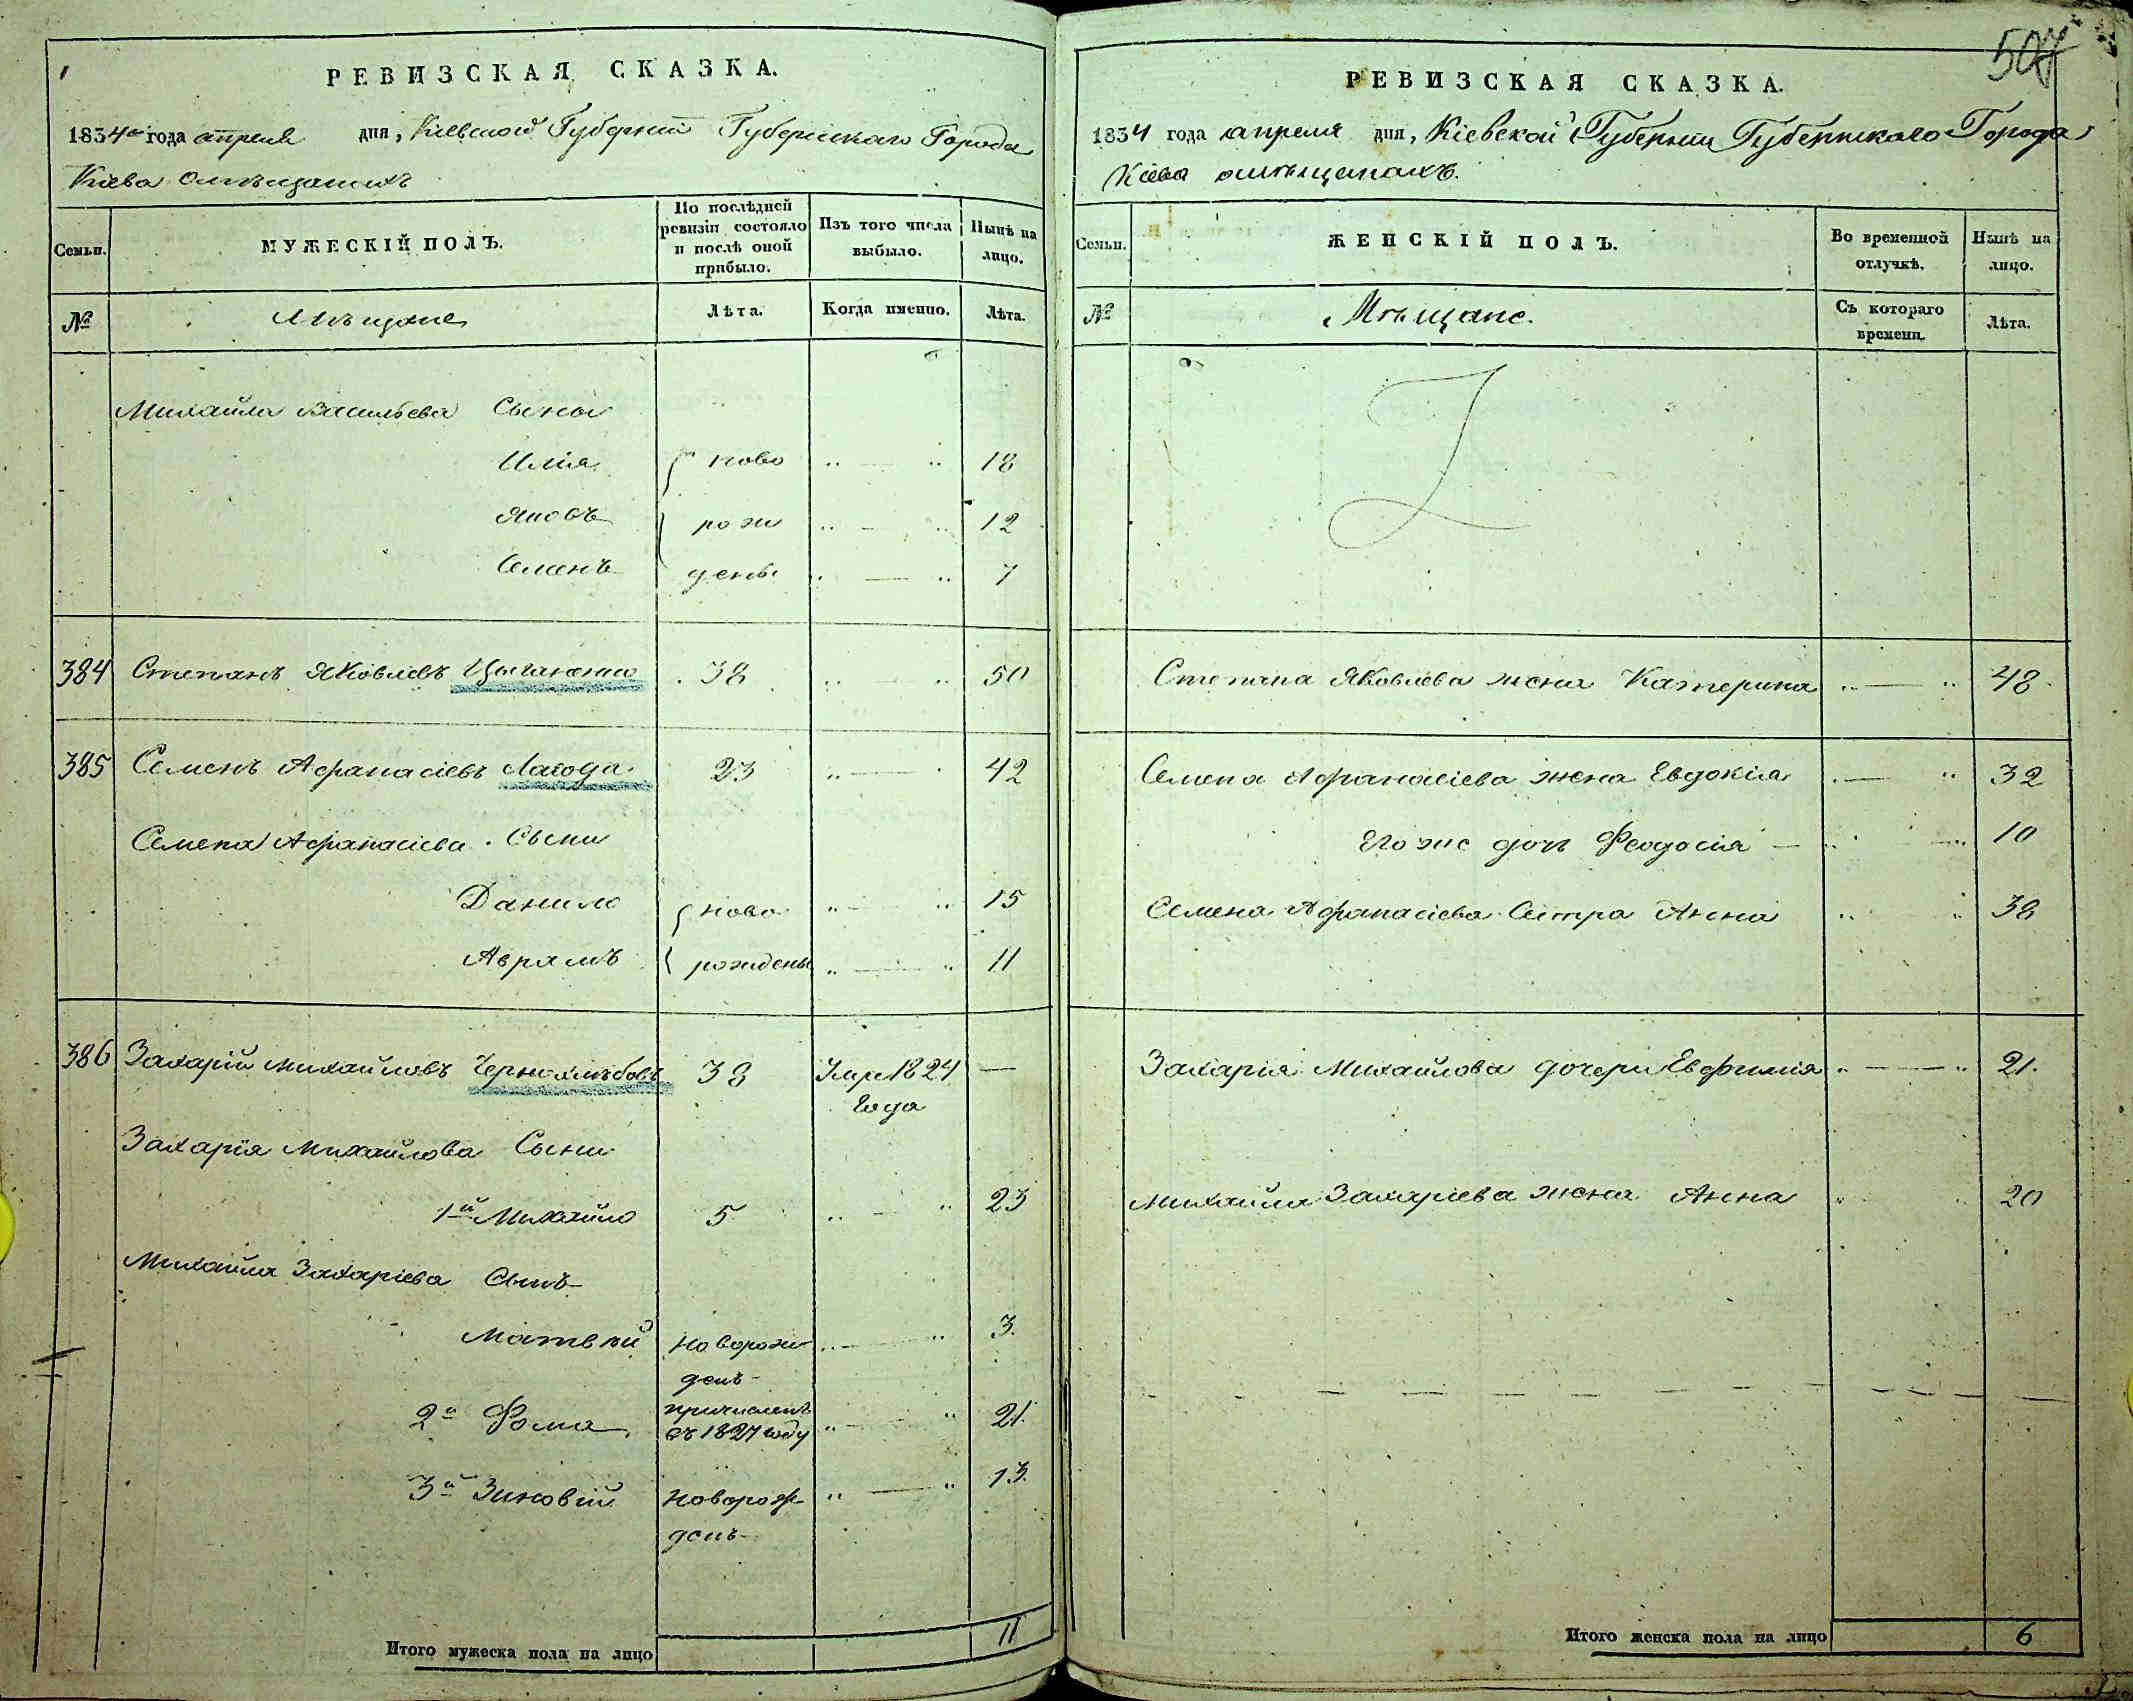 РЕВИЗСКАЯ СКАЗКА.
1834го года апреля дня, Кіевской Губерніи Губернскаго Города
Кіева омѣщанахъ
Семьи.
МУЖЕСКІЙ ПОЛЪ.
По послѣдней
ревизіи состояло
и послѣ оной
прибыло.
Изъ того числа
выбыло.
Нынѣ на
лицо.
№
Мѣщане
Лѣта.
Когда именно.
Лѣта.
Михайла Васильева Сыны
Илія ново 18
Яковъ рож 12
Семенъ дены 7
384 Степанъ Яковлевъ Цыганенко 38 50
385 Семенъ Афанасіевъ Лагода 23 42
Семена Афанасіева Сыны
Данило ново 15
Аврамъ рождены 11
386 Захарій Михайловъ Чернохлѣбовъ 38 Умре 1824 —
года
Захарія Михайлова Сыны
1й Михайло 5 23
Михайла Захаріева Сынъ
Матвѣй новорож 3
денъ
2й Фома причисленъ 21
въ 1827 году
3й Зиновій новорож 13
денъ
Итого мужеска пола на лицо 11
507
РЕВИЗСКАЯ СКАЗКА.
1834 года апреля дня, Кіевской Губерніи Губернскаго Города
Кіева омѣщанахъ.
Семьи.
ЖЕНСКІЙ ПОЛЪ.
Во временной
отлучкѣ.
Нынѣ на
лицо.
№
Мѣщане.
Съ котораго
времени.
Лѣта.
Степана Яковлева жена Катерина 48
Семена Афанасіева жена Евдокія 32
Его же дочь Феодосія 10
Семена Афанасіева Сестра Анна 38
Захарія Михайлова дочери Евфимія 21.
Михайла Захаріева жена Анна 20
Итого женска пола на лицо 6